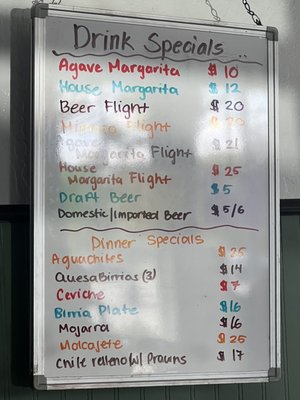 Drink Specials ..
Agave Margarita $ 10
House Margarita $ 12
Beer Flight $ 20
Mimosa Flight $ 20
Agave
Margarita Flight $ 21
House
Margarita Flight $ 25
Draft Beer $ 5
Domestic/Imported Beer $ 5/6
Dinner Specials
Aguachiles $ 25
QuesaBirrias (3) $ 14
Ceviche $ 7
Birria Plate $ 16
Mojarra $ 16
Molcajete $ 25
Chile relleno w/ Prawns $ 17